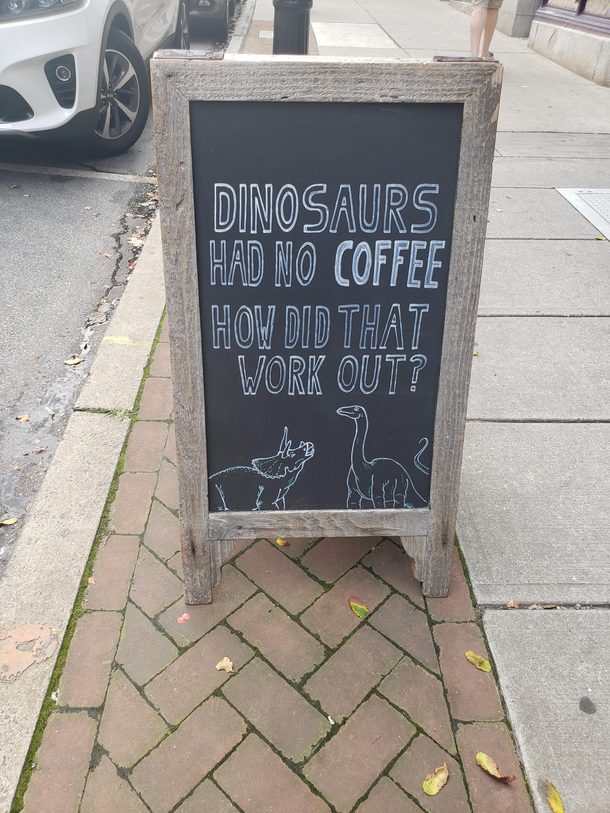 DINOSAURS
HAD NO COFFEE
HOW DID THAT
WORK OUT?